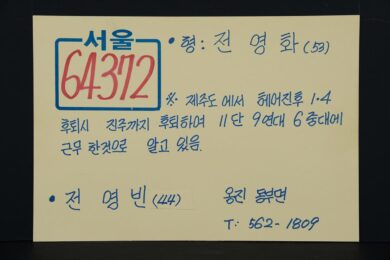 서울
64372
• 형: 전 영 화 (53)
※ 제주도 에서 헤어진후 1·4
후퇴시 진주까지 후퇴하여 11단 9연대 6중대에
근무 한것으로 알고 있음.
• 전 영 빈 (44)
옹진 용부면
T: 562-1809